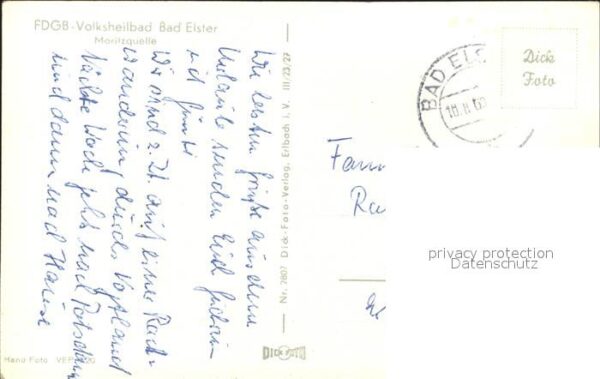 FDGB-Volksheilbad Bad Elster
Moritzquelle
Die besten Grüße aus dem
Urlaub senden Euch
und Günter
Wir sind z. Zt. auf einer Rad-
wanderung durchs Vogtland
Nächste Woche geht's nach Potsdam
und dann nach Hause
Hano Foto
Nr. 7807 Dick-Foto-Verlag, Erlbach i. V. III/23/27
DICK FOTO
BAD ELS
Dick
Foto
Fam
Ra
privacy protection
Datenschutz